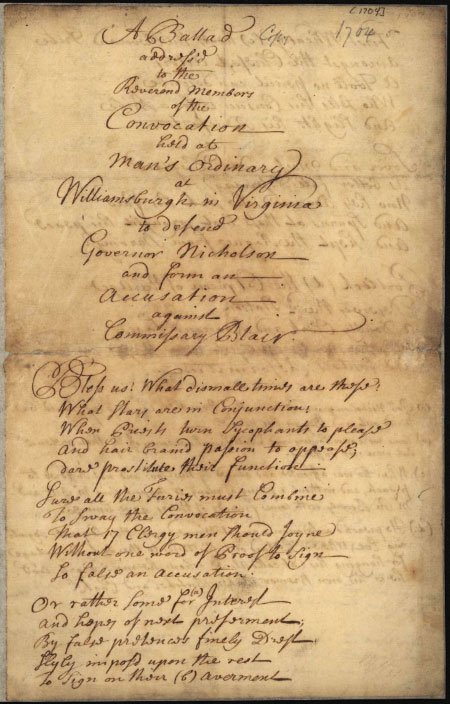 [1704]
A Ballad
Copy
1704
address'd
to the
Reverend Members
of the
Convocation
held at
Man's Ordinary
at
Williamsburgh, in Virginia
to defend
Governor Nicholson
and form an
Accusation
against
Commissary Blair.
Bless us! What dismall times are these,
What Stars are in Conjunction;
When Priests turn Sycophants to please
And hair brand passion to appease;
dare prostitute their function
Sure all the Furies must Combine
to Sway the Convocation
That 17 Clergy men should Joyne
Without one word of Proof to Sign
So false an Accusation.
Or rather some for (a) Interest
and hopes of next preferment;
By false pretences finely Drest
Slyly impos'd upon the rest
to Sign on their (b) averment